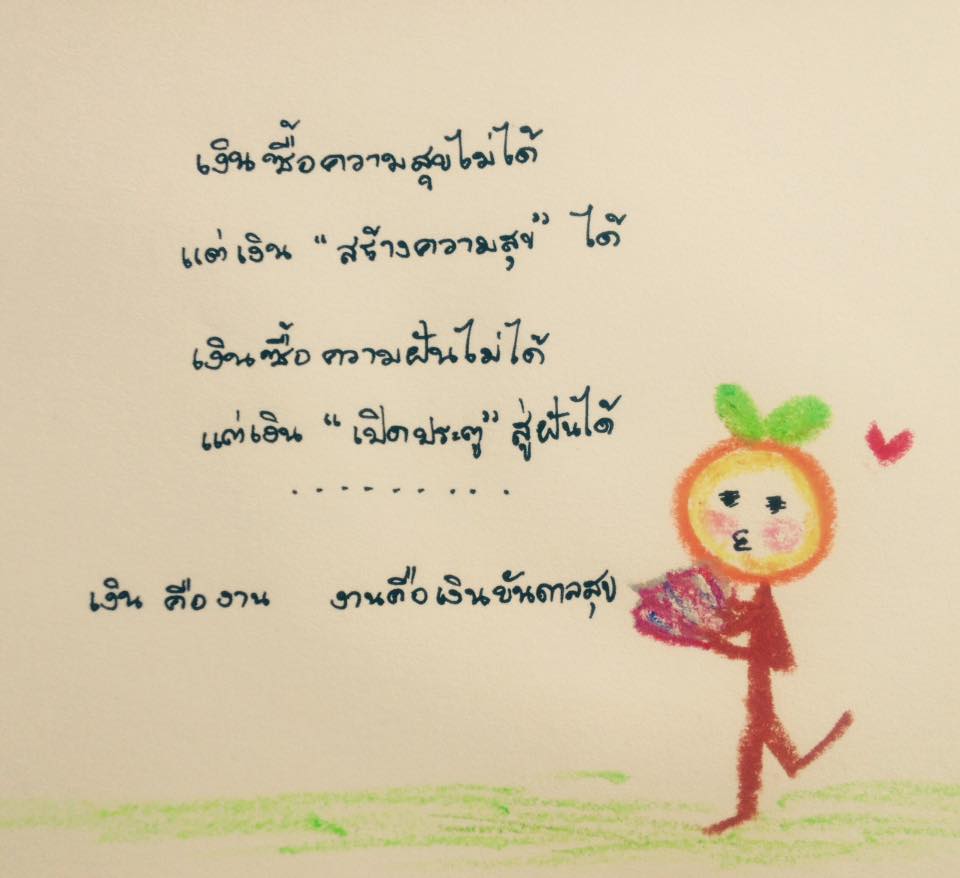 เงินซื้อความสุขไม่ได้
แต่เงิน "สร้างความสุข" ได้
เงินซื้อความฝันไม่ได้
แต่เงิน "เปิดประตู" สู่ฝันได้
..........
เงิน คืองาน งานคือเงินบันดาลสุข